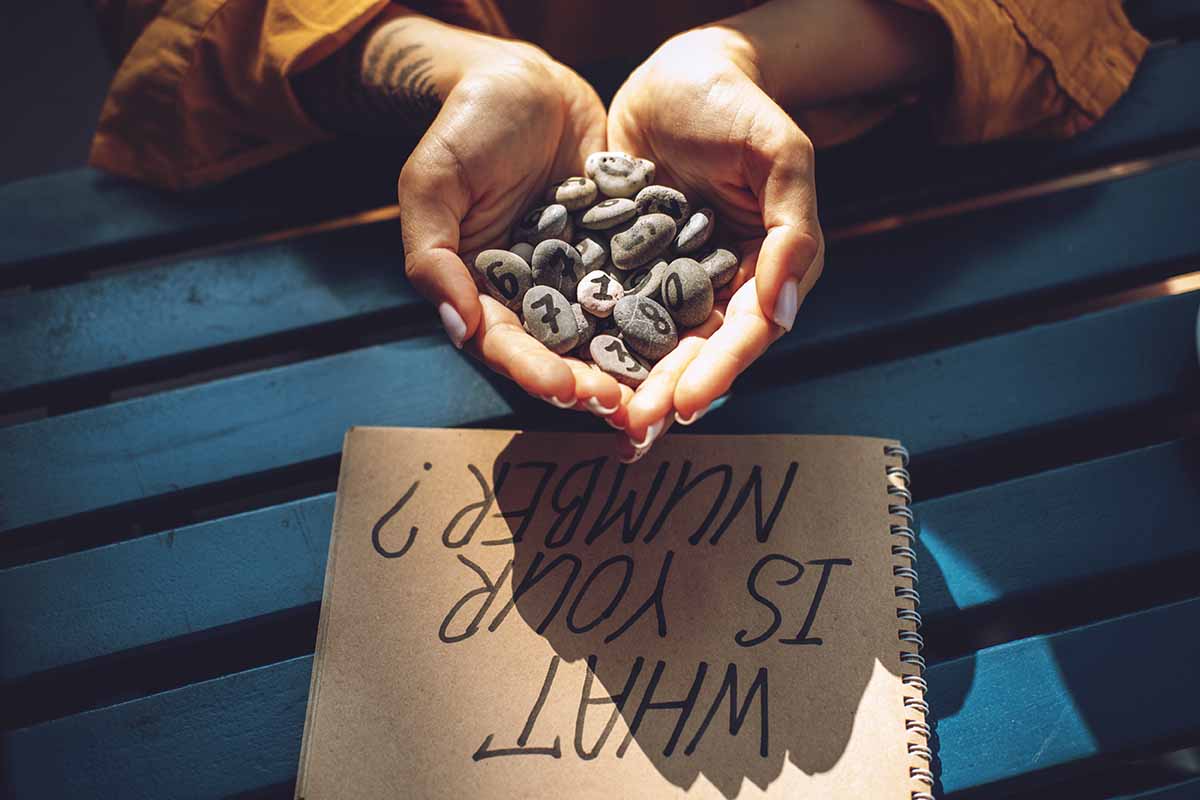 WHAT
IS YOUR
NUMBER?
6
7
1
0
8